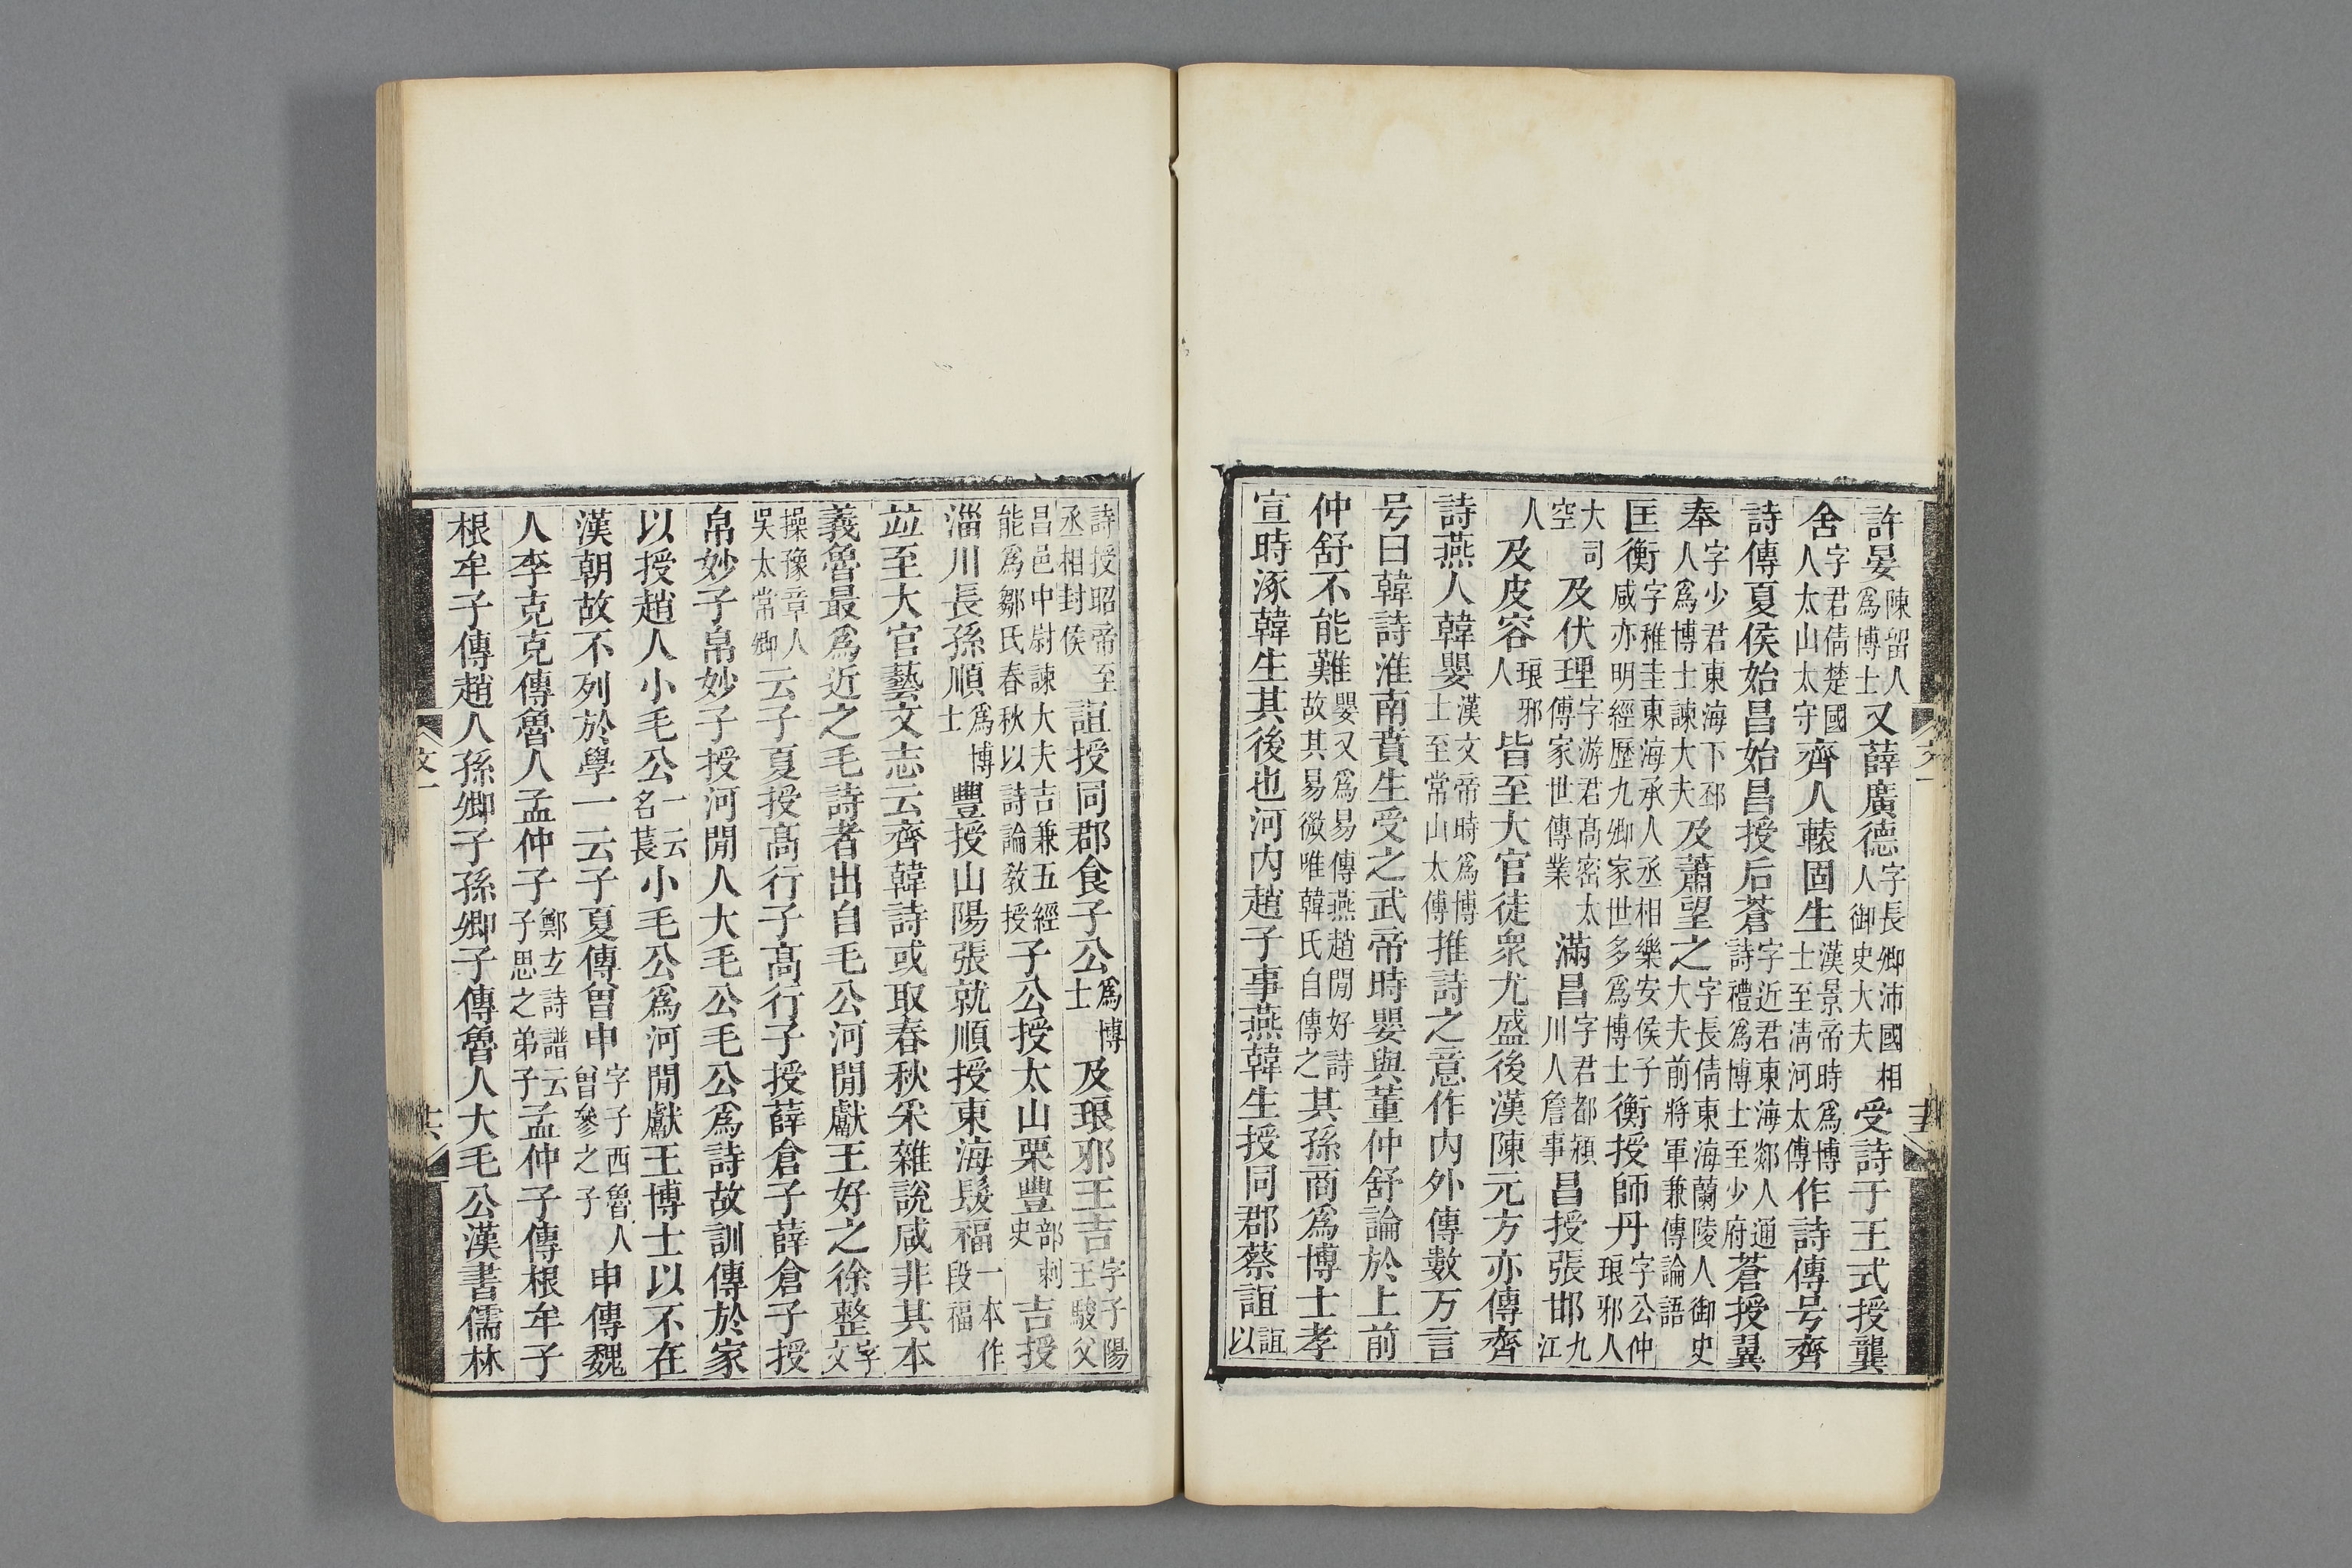 許晏陳留人爲博士又薛廣德字長卿沛國相人御史大夫受詩于王式授龔
舍字君倩楚國人太山太守齊人轅固生漢景帝時爲博士至淸河太傅作詩傳号齊
詩傳夏侯始昌始昌授后蒼字近君東海郯人通詩禮爲博士至少府蒼授翼
奉字少君東海下邳人爲博士諫大夫及蕭望之字長倩東海蘭陵人御史大夫前將軍兼傳論語
匡衡字稚圭東海承人丞相樂安侯子咸亦明經歷九卿家世多爲博士衡授師丹字公仲琅邪人
大司空及伏理字游君高密太傅家世傳業滿昌字君都潁川人詹事昌授張邯九江
人及皮容琅邪人皆至大官徒衆尤盛後漢陳元方亦傳齊
詩燕人韓嬰漢文帝時爲博士至常山太傅推詩之意作内外傳數万言
号曰韓詩淮南賁生受之武帝時嬰與董仲舒論於上前
仲舒不能難嬰又爲易傳燕趙閒好詩故其易微唯韓氏自傳之其孫商爲博士孝
宣時涿韓生其後也河内趙子事燕韓生授同郡蔡誼誼以
詩授昭帝至丞相封侯誼授同郡食子公爲博士及琅邪王吉字子陽王駿父
昌邑中尉諫大夫吉兼五經能爲鄒氏春秋以詩論敎授子公授太山栗豐部刺史吉授
淄川長孫順爲博士豐授山陽張就順授東海髮福一本作段福
竝至大官藝文志云齊韓詩或取春秋釆雜說咸非其本
義魯最爲近之毛詩者出自毛公河閒獻王好之徐整字文
操豫章人吳太常卿云子夏授高行子高行子授薛倉子薛倉子授
帛妙子帛妙子授河閒人大毛公毛公爲詩故訓傳於家
以授趙人小毛公一云名萇小毛公爲河閒獻王博士以不在
漢朝故不列於學一云子夏傳曾申字子西魯人曾參之子申傳魏
人李克克傳魯人孟仲子鄭玄詩譜云子思之弟子孟仲子傳根牟子
根牟子傳趙人孫卿子孫卿子傳魯人大毛公漢書儒林